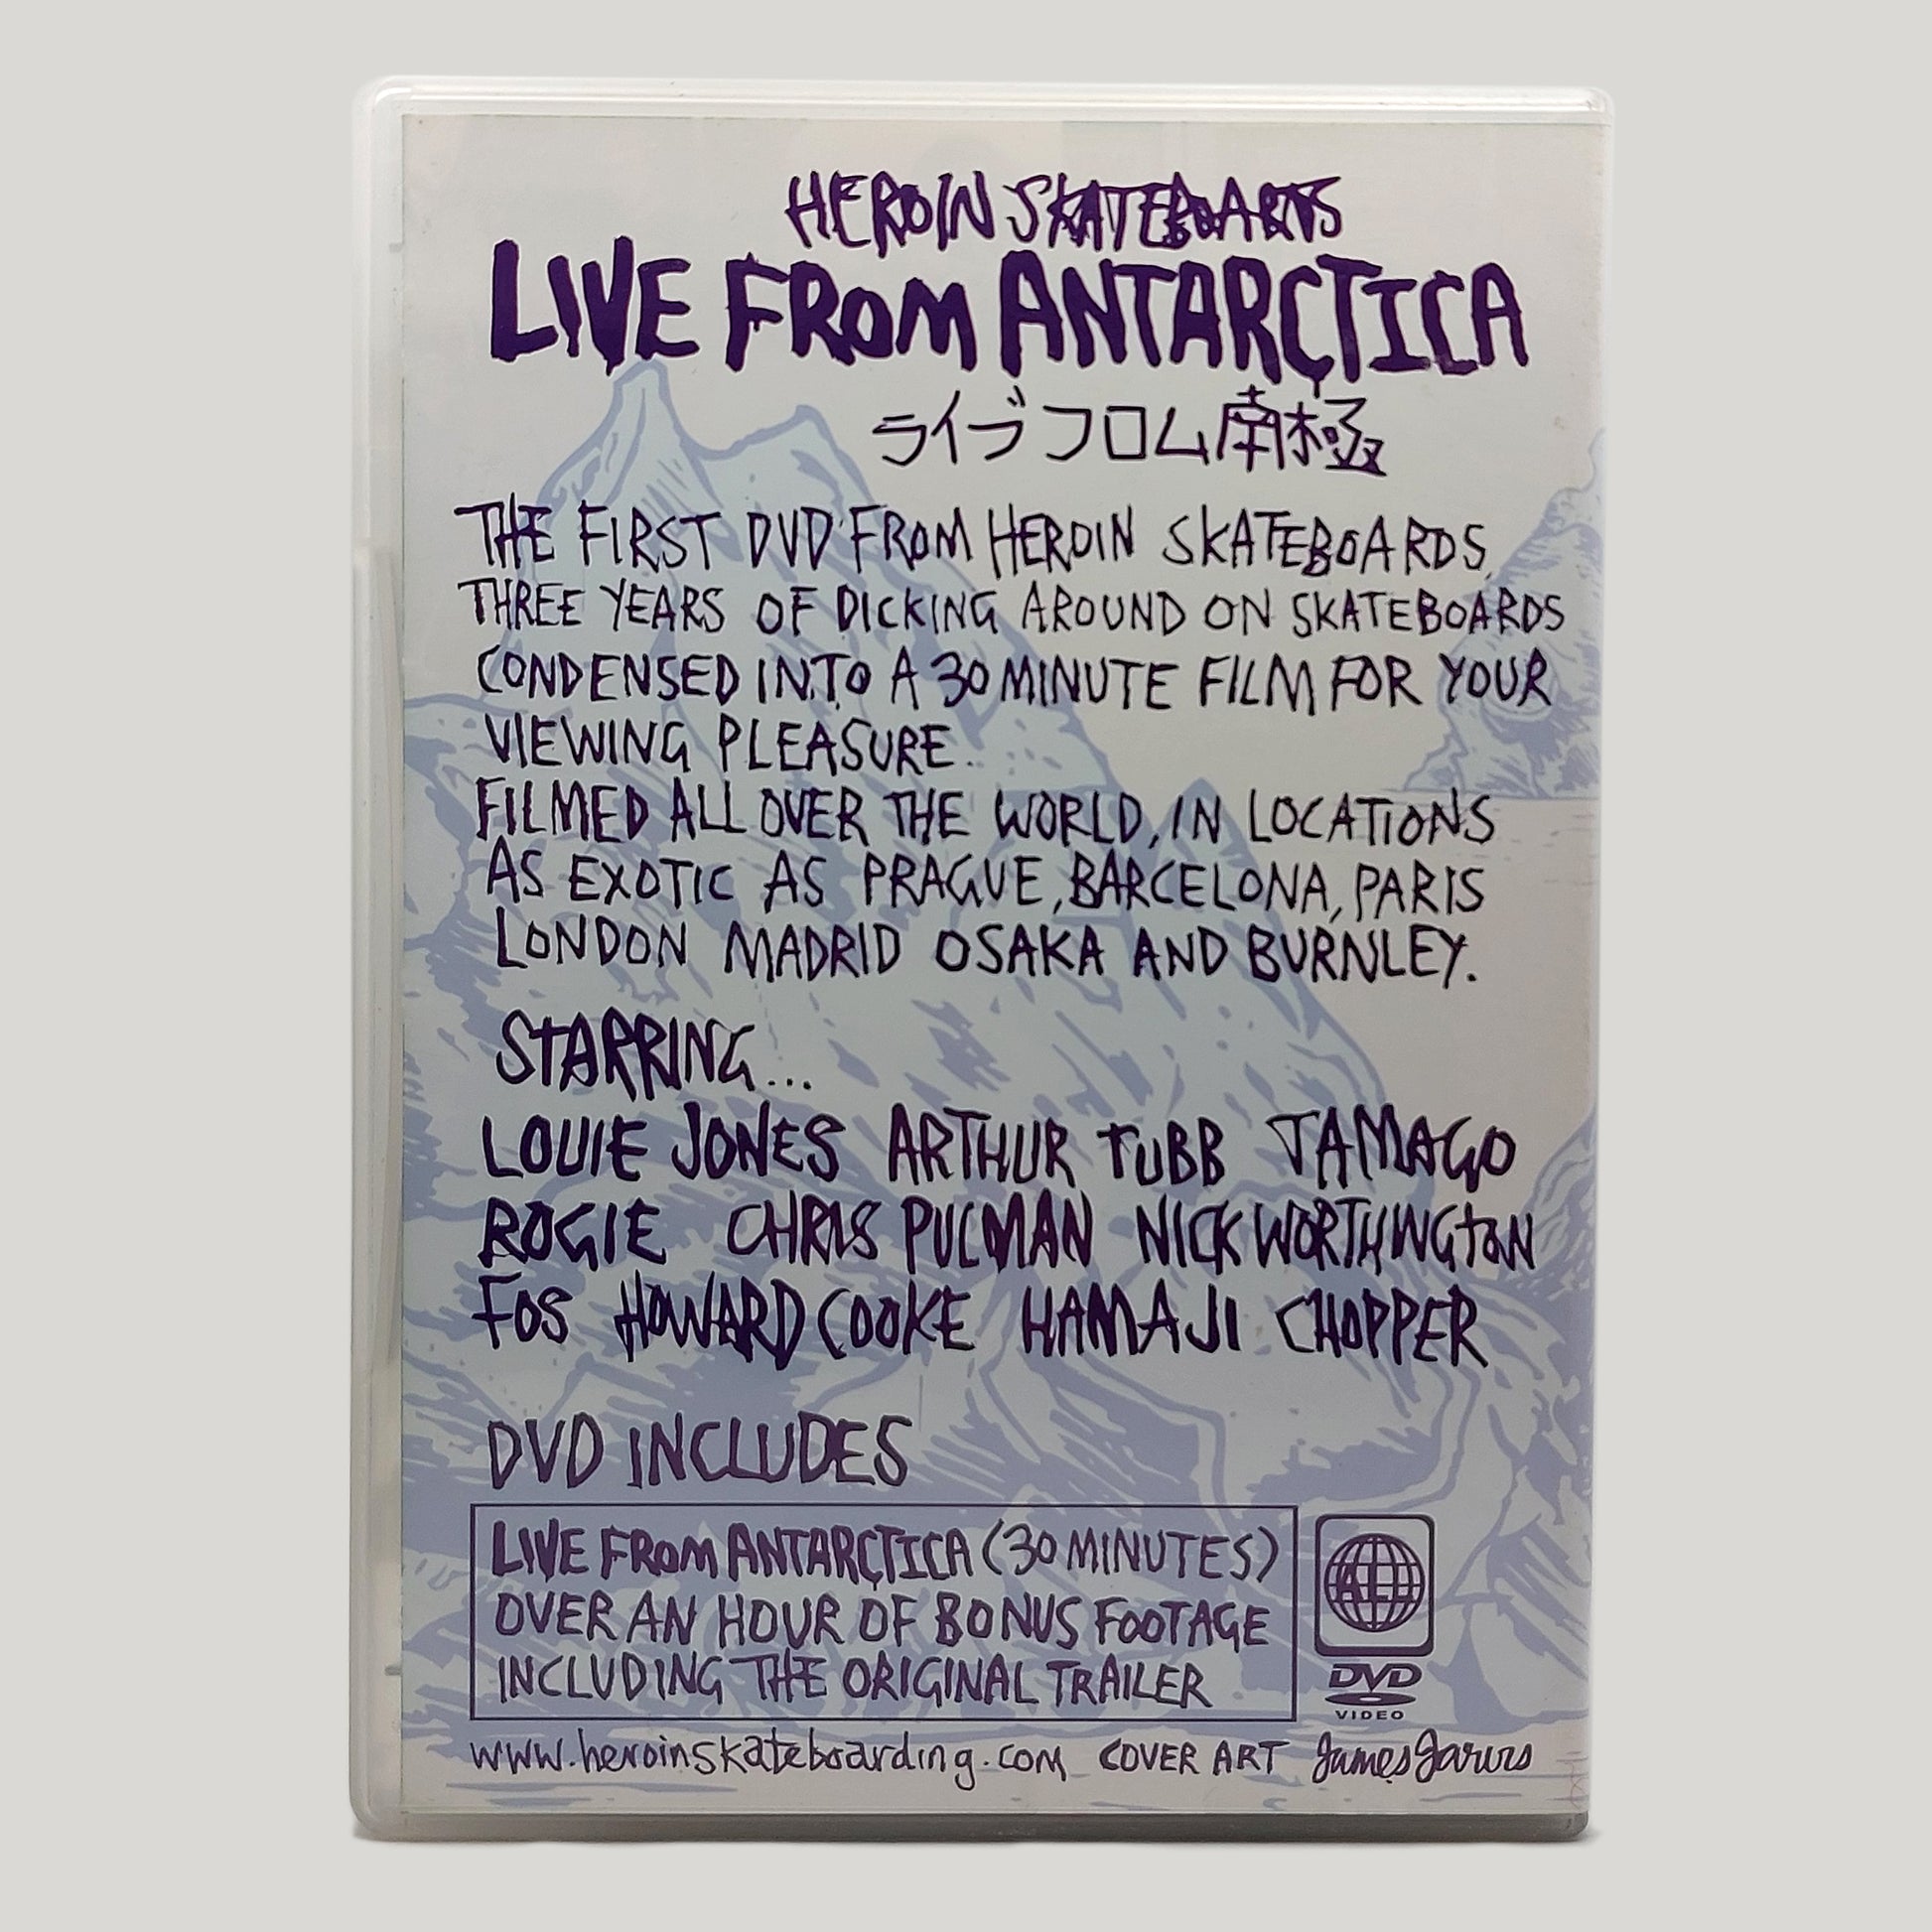 HEROIN SKATEBOARDS
LIVE FROM ANTARCTICA
ライブ フロム 南極
THE FIRST DVD FROM HEROIN SKATEBOARDS,
THREE YEARS OF DICKING AROUND ON SKATEBOARDS
CONDENSED INTO A 30 MINUTE FILM FOR YOUR
VIEWING PLEASURE.
FILMED ALL OVER THE WORLD, IN LOCATIONS
AS EXOTIC AS PRAGUE, BARCELONA, PARIS
LONDON MADRID OSAKA AND BURNLEY.
STARRING...
LOUIE JONES ARTHUR TUBB TAMAGO
ROGIE CHRIS PULMAN NICK WORTHINGTON
FOS HOWARD COOKE HAMAJI CHOPPER
DVD INCLUDES
LIVE FROM ANTARCTICA (30 MINUTES)
OVER AN HOUR OF BONUS FOOTAGE
INCLUDING THE ORIGINAL TRAILER
ALL
DVD
VIDEO
www.heroinskateboarding.com COVER ART James Jarvis